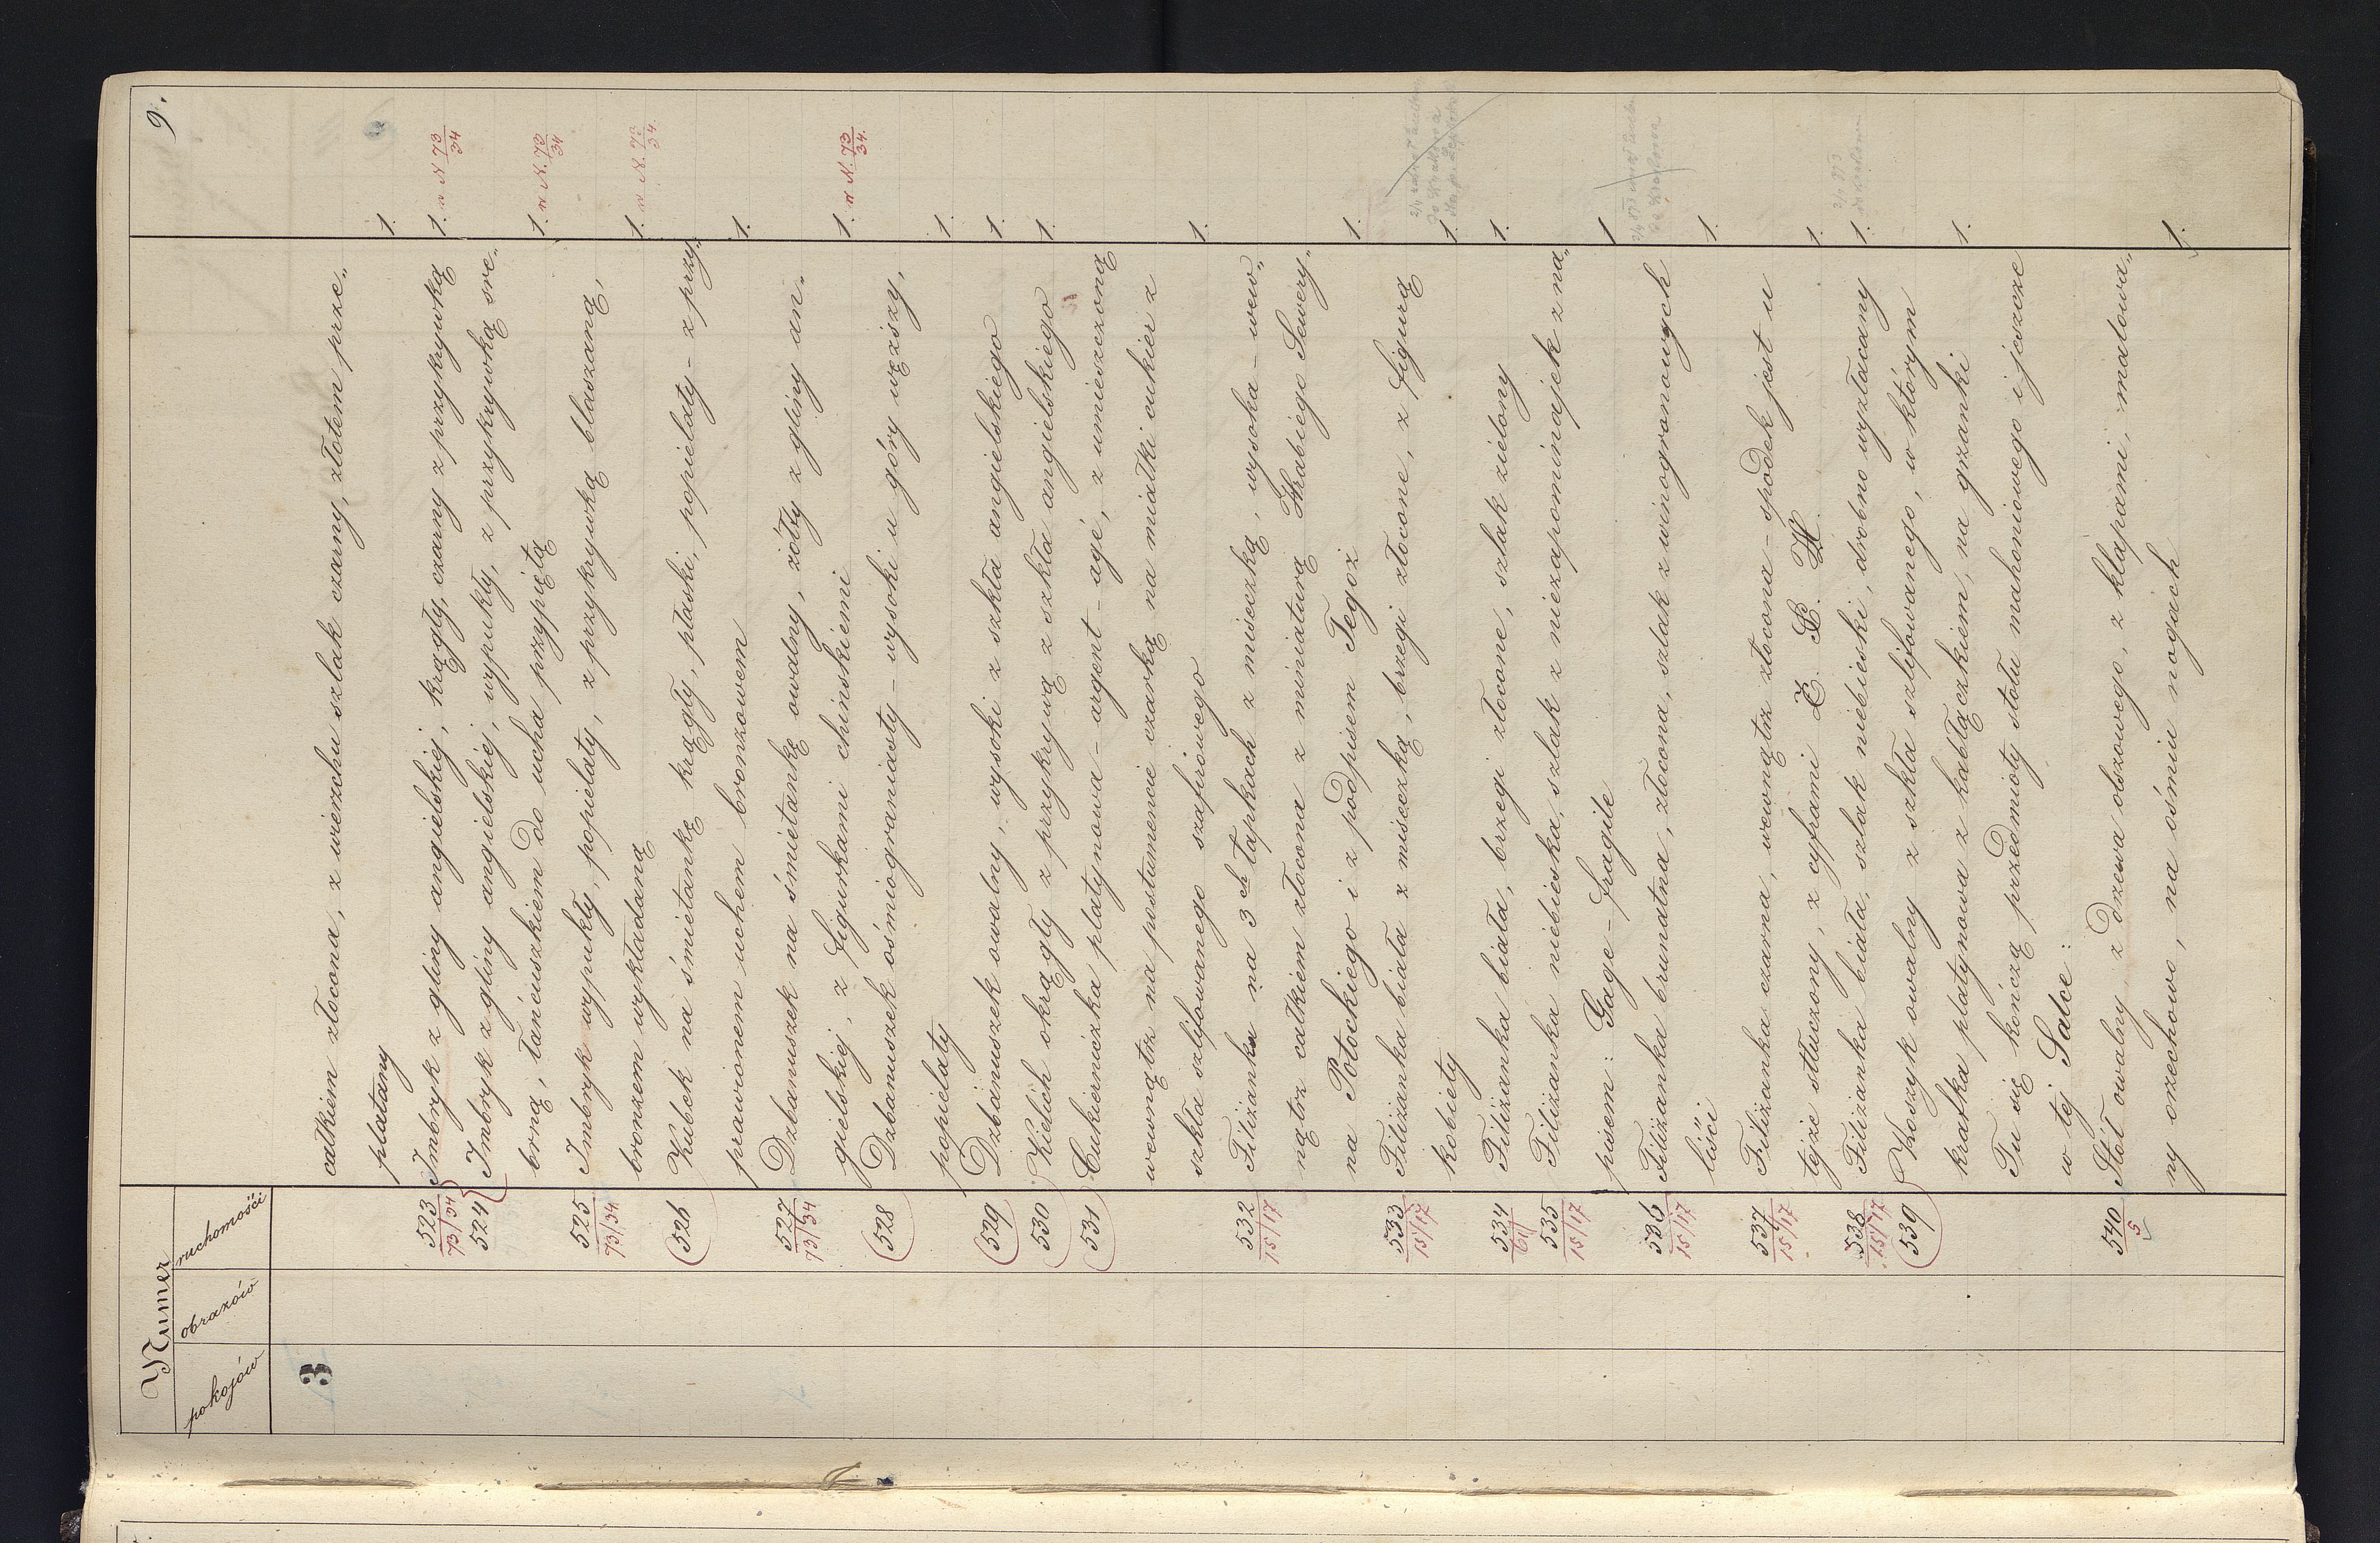 9.
Numer
pokojów obrazów ruchomości
3
całkiem złocona, z wierzchu szlak czarny, złotem prze„
platany 1.
523 Imbryk z gliny angielskiéj, krągły, czarny z przykrywką 1. w N 73/34
73/34
524 Imbryk z gliny angielskiéj, wypukły, z przykrywką sre„
brną, łańcuszkiem do ucha przypiętą 1. w N. 73/34
525 Imbryk wypukły, popielaty, z przykrywką blaszaną,
73/34 bronzem wykładaną 1. w N. 73/34.
526 Kubek na śmietankę krągły, płaski, popielaty – z przy„
prawionem uchem bronzowem 1.
527 Dzbanuszek na śmietankę owalny, żółty z gliny an.
73/34 gielskiej, z figurkami chińskiemi 1. w N. 73/34.
528 Dzbanuszek ośmiograniasty – wysoki u góry węższy,
popielaty 1.
529 Dzbanuszek owalny, wysoki z szkła angielskiego 1.
530 Kielich okrągły z przykrywą z szkła angielskiego 1.
531 Cukierniczka platynowa – argent – agé, z umieszczoną
wewnątrz na postumencie czarką na miałki cukier z
szkła szlifowanego szafirowego 1.
532 Filiżanka na 3ch łapkach z miseczką, wysoka – wew„
15/17 nątrz całkiem złocona z miniaturą Hrabiego Sewery„
na Potockiego i z podpisem Tegoż 1.
533 Filiżanka biała z miseczką, brzegi złocone, z figurą
15/17 kobiety 1.
534 Filiżanka biała, brzegi złocone, szlak zielony 1.
535 Filiżanka niebieska, szlak z niezapominajek z na„
15/17 pisem: Gage – fragile 1
536 Filiżanka brunatna, złocona, szlak z winogronowych
15/17 liści 1.
537 Filiżanka czarna, wewnątrz złocona – spodek jest u
15/17 tejże stłuczony, z cyframi Z. B. H. 1.
538 Filiżanka biała, szlak niebieski, drobno wyzłacany 1.
15/17
539 Koszyk owalny z szkła szlifowanego, w którym
kratka platynowa z kabłączkiem, na grzanki 1.
Tu się kończą przedmioty stołu mahoniowego i jeszcze
w tej Salce:
540 Stół owalny z drzewa olszowego, z klapami, malowa„
5 ny orzechowo, na ośmiu nogach 1.